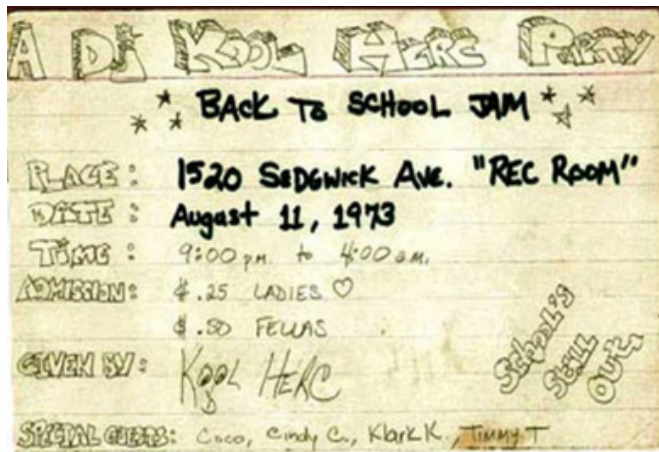 A DJ KOOL HERC PARTY
BACK TO SCHOOL JAM
PLACE: 1520 SEDGWICK AVE. "REC ROOM"
DATE: August 11, 1973
TIME: 9:00 pm. to 4:00 am.
ADMISSION: $.25 LADIES ♡
$.50 FELLAS
GIVEN BY: KOOL HERC
SCHOOL'S
STILL
OUT,
SPECIAL GUESTS: Coco, Cindy C., Klark K., TIMMY T